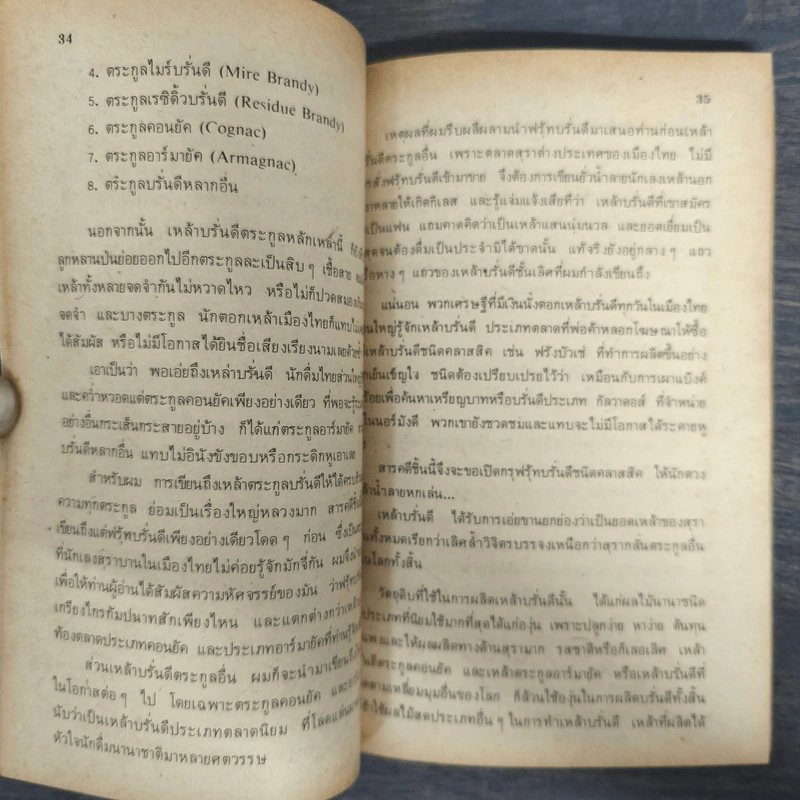 34
4. ตระกูลไมร์บรั่นดี (Mire Brandy)
5. ตระกูลเรซิดิ้วบรั่นดี (Residue Brandy)
6. ตระกูลคอนยัค (Cognac)
7. ตระกูลอาร์มายัค (Armagnac)
8. ตระกูลบรั่นดีหลากอื่น
นอกจากนั้น เหล้าบรั่นดีตระกูลหลักเหล่านี้
ลูกหลานป่นย่อยออกไปอีกตระกูลละเป็นสิบๆ เชื้อสาย
เหล้าทั้งหลายจดจำกันไม่หวาดไหว หรือไม่ก็ปวดสมอง
จดจำ และบางตระกูล นักตอกเหล้าเมืองไทยก็แทบไม่
ได้สัมผัส หรือไม่มีโอกาสได้ยินชื่อเสียงเรียงนามเลย
เอาเป็นว่า พอเอ่ยถึงเหล่าบรั่นดี นักดื่มไทยส่วนใหญ่
และคว้าหวอดแต่ตระกูลคอนยัคเพียงอย่างเดียว ที่พอจะรู้
อย่างอื่นกระเส็นกระสายอยู่บ้าง ก็ได้แก่ตระกูลอาร์มายัค
บรั่นดีหลากอื่น แทบไม่อินังขังขอบหรือกระดิกหูเอาเลย
สำหรับผม การเขียนถึงเหล้าตระกูลบรั่นดีให้ได้ครบ
ความทุกตระกูล ย่อมเป็นเรื่องใหญ่หลวงมาก สารคดี
เขียนถึงแต่ฟรุ้ทบรั่นดีเพียงอย่างเดียวโดดๆ ก่อน ซึ่งเป็น
ที่นักเลงสุราบานในเมืองไทยไม่ค่อยรู้จักมักจี่กัน ผมจึง
เพื่อให้ท่านผู้อ่านได้สัมผัสความหัศจรรย์ของมัน ว่าฟรุ้ท
เกรียงไกรกัมปนาทสักเพียงไหน และแตกต่างกว่า
ท้องตลาดประเภทคอนยัค และประเภทอาร์มายัคที่ท่านรู้จัก
ส่วนเหล้าบรั่นดีตระกูลอื่น ผมก็จะนำมาเขียน
ในโอกาสต่อๆ ไป โดยเฉพาะตระกูลคอนยัค และ
นับว่าเป็นเหล้าบรั่นดีประเภทตลาดนิยม ที่โลด
หัวใจนักดื่มนานาชาติมาหลายศตวรรษ
35
เหตุผลที่ผมรีบผลีผลามนำฟรุ้ทบรั่นดีมาเสนอท่านก่อนเหล้า
บรั่นดีตระกูลอื่น เพราะตลาดสุราต่างประเทศของเมืองไทย ไม่มี
การสั่งฟรุ้ทบรั่นดีเข้ามาขาย จึงต้องการเขียนยั่วน้ำลายนักเลงเหล้านอก
ทั้งหลายให้เกิดกิเลส และรู้แจ่มแจ้งเสียทีว่า เหล้าบรั่นดีที่เขาสมัคร
เป็นแฟน แถมคาดคิดว่าเป็นเหล้าแสนนุ่มนวล และยอดเยี่ยมเป็น
สุดจนต้องดื่มเป็นประจำมิได้ขาดนั้น แท้จริงยังอยู่กลางๆ แถว
หรือหางๆ แถวของเหล้าบรั่นดีชั้นเลิศที่ผมกำลังเขียนถึง
แน่นอน พวกเศรษฐีที่มีเงินนั่งตอกเหล้าบรั่นดีทุกวันในเมืองไทย
ส่วนใหญ่รู้จักเหล้าบรั่นดี ประเภทตลาดที่พ่อค้าหลอกโฆษณาให้ซื้อ
เหล้าบรั่นดีชนิดคลาสสิค เช่น ฟรังบัวเซ่ ที่ทำการผลิตขึ้นอย่าง
เย็นเข็ญใจ ชนิดต้องเปรียบเปรยไว้ว่า เหมือนกับการเผาแบ๊งค์
ร้อยเพื่อค้นหาเหรียญบาทหรือบรั่นดีประเภท กัลวาดอส ที่จำหน่าย
ในนอร์มังดี พวกเขายังชวดชมและแทบจะไม่มีโอกาสได้ระคายหู
สารคดีชิ้นนี้จึงจะขอเปิดกรุฟรุ้ทบรั่นดีชนิดคลาสสิค ให้นักดวง
น้ำลายหกเล่น...
เหล้าบรั่นดี ได้รับการเอ่ยขานยกย่องว่าเป็นยอดเหล้าของสุรา
ทั้งหมดเรียกว่าเลิศล้ำวิจิตรบรรจงเหนือกว่าสุรากลั่นตระกูลอื่น
ในโลกทั้งสิ้น
วัตถุดิบที่ใช้ในการผลิตเหล้าบรั่นดีนั้น ได้แก่ผลไม้นานาชนิด
ประเภทที่นิยมใช้มากที่สุดได้แก่องุ่น เพราะปลูกง่าย หาง่าย ต้นทุน
และให้ผลผลิตทางด้านสุรามาก รสชาติหรือก็เลอเลิศ เหล้า
บรั่นดีตระกูลคอนยัค และเหล้าตระกูลอาร์มายัค หรือเหล้าบรั่นดีที่
ตามเหลี่ยมมุมอื่นของโลก ก็ล้วนใช้องุ่นในการผลิตบรั่นดีทั้งสิ้น
ใช้ผลไม้สดประเภทอื่นๆ ในการทำเหล้าบรั่นดี เหล้าที่ผลิตได้